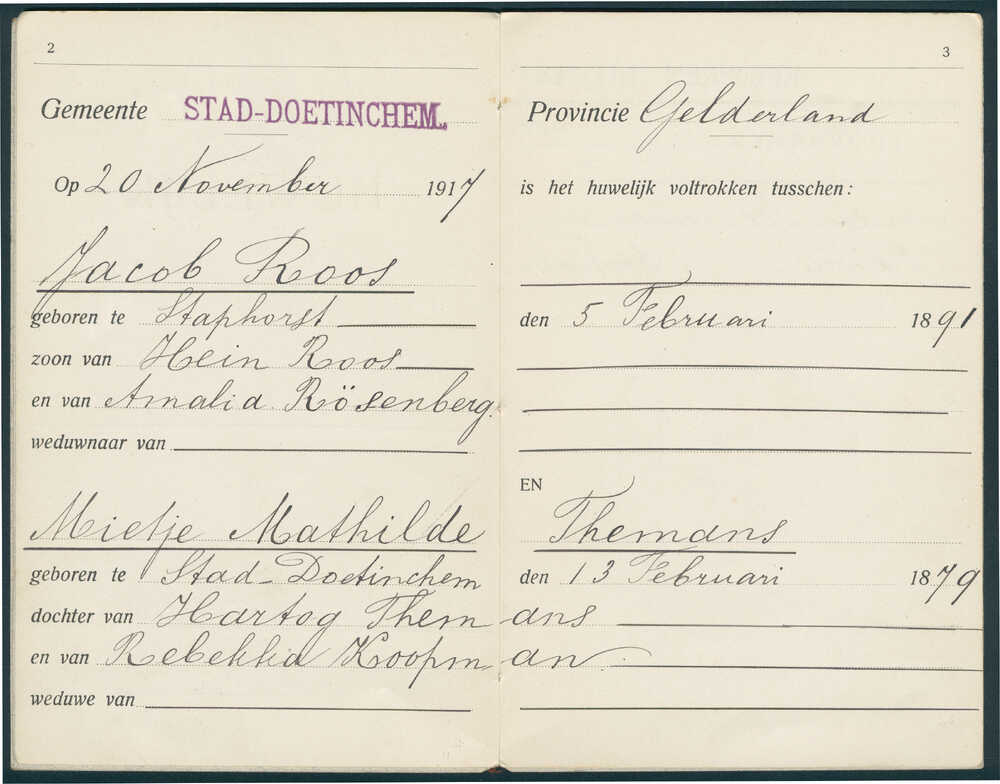 2
3
Gemeente STAD-DOETINCHEM.
Provincie Gelderland
Op 20 November 1917
is het huwelijk voltrokken tusschen:
Jacob Roos
geboren te Staphorst
den 5 Februari 1891
zoon van Hein Roos
en van Amalia Rösenberg.
weduwnaar van
EN
Mietje Mathilde Themans
geboren te Stad-Doetinchem
den 13 Februari 1879
dochter van Hartog Themans
en van Rebekka Koopman
weduwe van